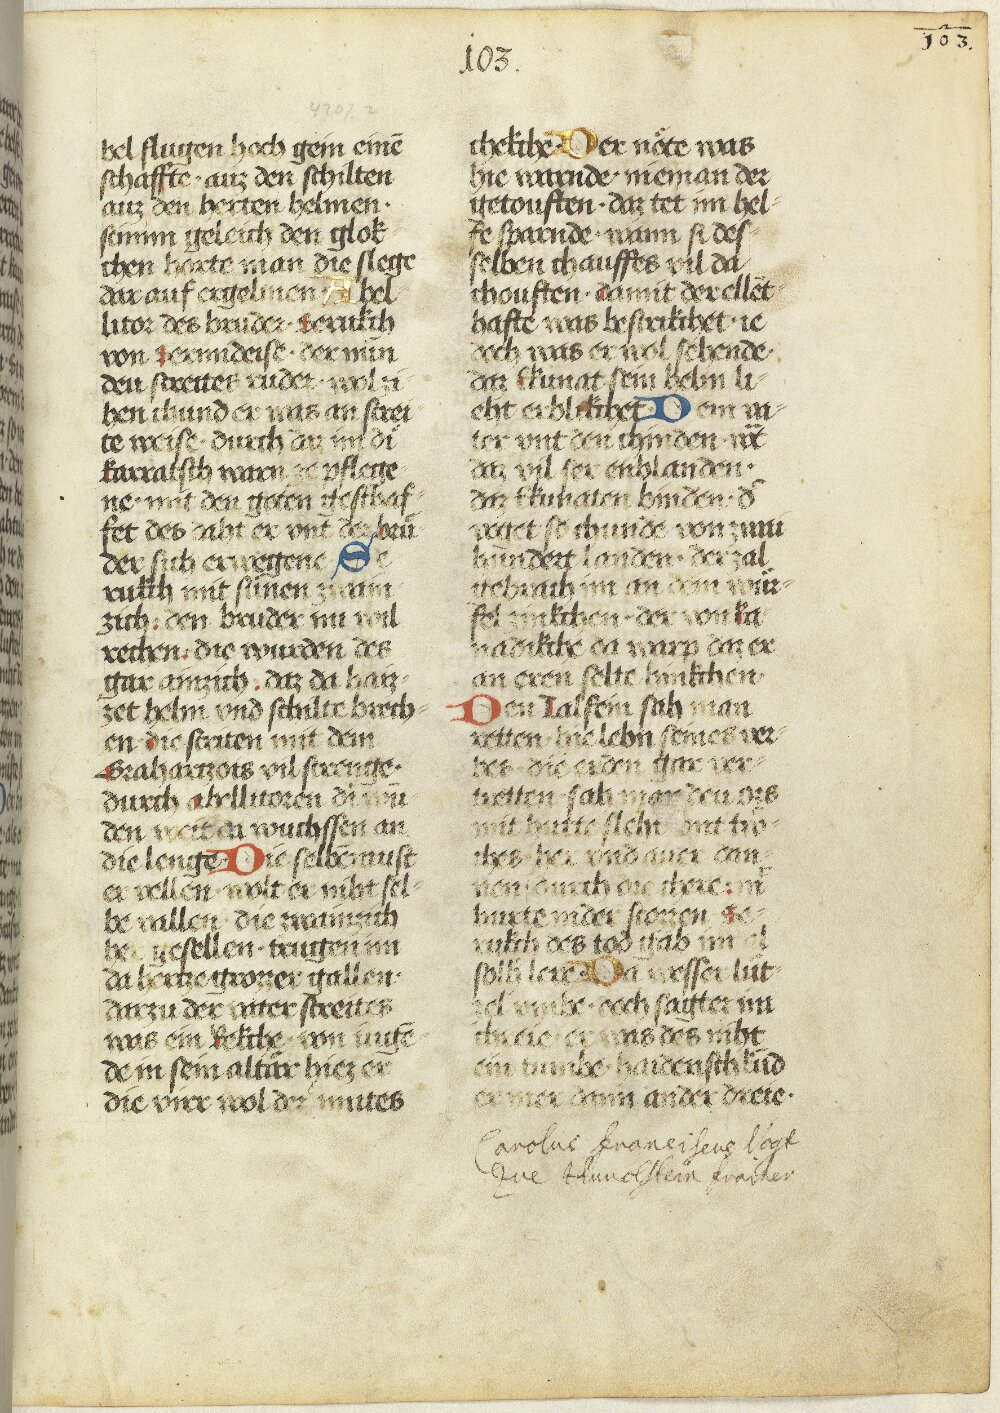 103.
103.
bel flugen hoch gein einē
schaffte · auz den schilten
auz den herten helmen ·
stimm geleich den glok-
chen horte man die slege
dar auf ergelmen · Abel
litor des bruder · Serukch
von Sernndeise · der min
den streites ruder · wol zi
hen chund er was an strei
te weise · durch daz im di
karratsch warn ze pflege
ne · mit den goten geschaf-
fet des aht er vnt der brů
der sich erwegene Se
rukch mit sünen zwain
zich · den bruder nu wil
rechen · die wurden des
gar ainzich · daz da haiz-
zet helm vnd schilte brech-
en · die striten mit dem
Grahartzois vil strenge ·
durch abellitoren di wu
den weit da wuchssen an
die lenge · Die selbē must
er vellen · wolt er niht sel-
be vallen · die zwainzich
her gesellen · trugen im
da hertze grozzer gallen ·
darzu der riter streites
was ein kekche · von iugē
de in sein altär hiez er
die virr wol der mutes
chekche · Der nöte was
hie warnde · nieman der
getouften · daz tet im hel-
fe sparnde · wann si des-
selben chauffes vil da
chouften · damit der ellēt-
hafte was bestrikchet · ie
doch was er wol sehende ·
daz Ekunat sein helm li-
eht erblikchet Dem ri-
ter vnt den chinden · wͦ
daz vil ser enblanden ·
daz Ekunaten binden · d
voget so chunde von zwai
hundert landen · der zal
gebrach im an dem wür-
fel zinkchen · der von ka
nadikche da warp daz er
an eren solte hinkchen ·
Den Talfein sah man
retten · hie lebn seines ver-
hes · die erden gar ver-
tretten · sah man den ors
mit hurte slehn vnt trö-
ches · her vnd auer dan-
nen · durch die chere · m
hurte nider stozzen Se-
rukch des tod gab im al
solh lere Da wesser lüt-
zel vmbe · doch sagter im
chreie · er was des niht
ein tumbe · haidenschkūd
er mer dann ander dreie ·
Carolus Franciscus Vogt
Zue Hunolstein freiherr